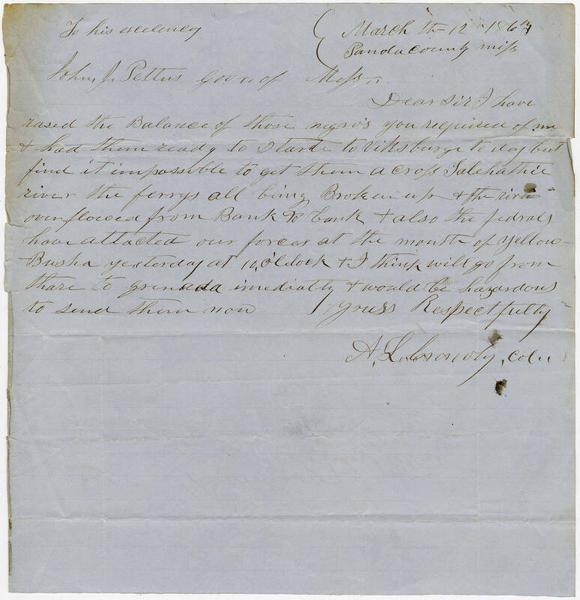 To his excelency
March th 12 1863
Panola County miss
John J. Pettus Gov of Miss
Dear Sir I have
rased the Balance of those negros you required of me
& had them ready to Starte to Viksburge to day but
find it impossible to get them a cross Talehathie
river the ferrys all being Broken up & the river
overflowed from Bank to bank & also the fedrals
have attacted our forces at the mouth of Yellow
Busha yesterday at 10, oclock & I think will go from
thare to grenada imediatly & would be hazardous
to send them now yours Respectfully
A. L. Col.